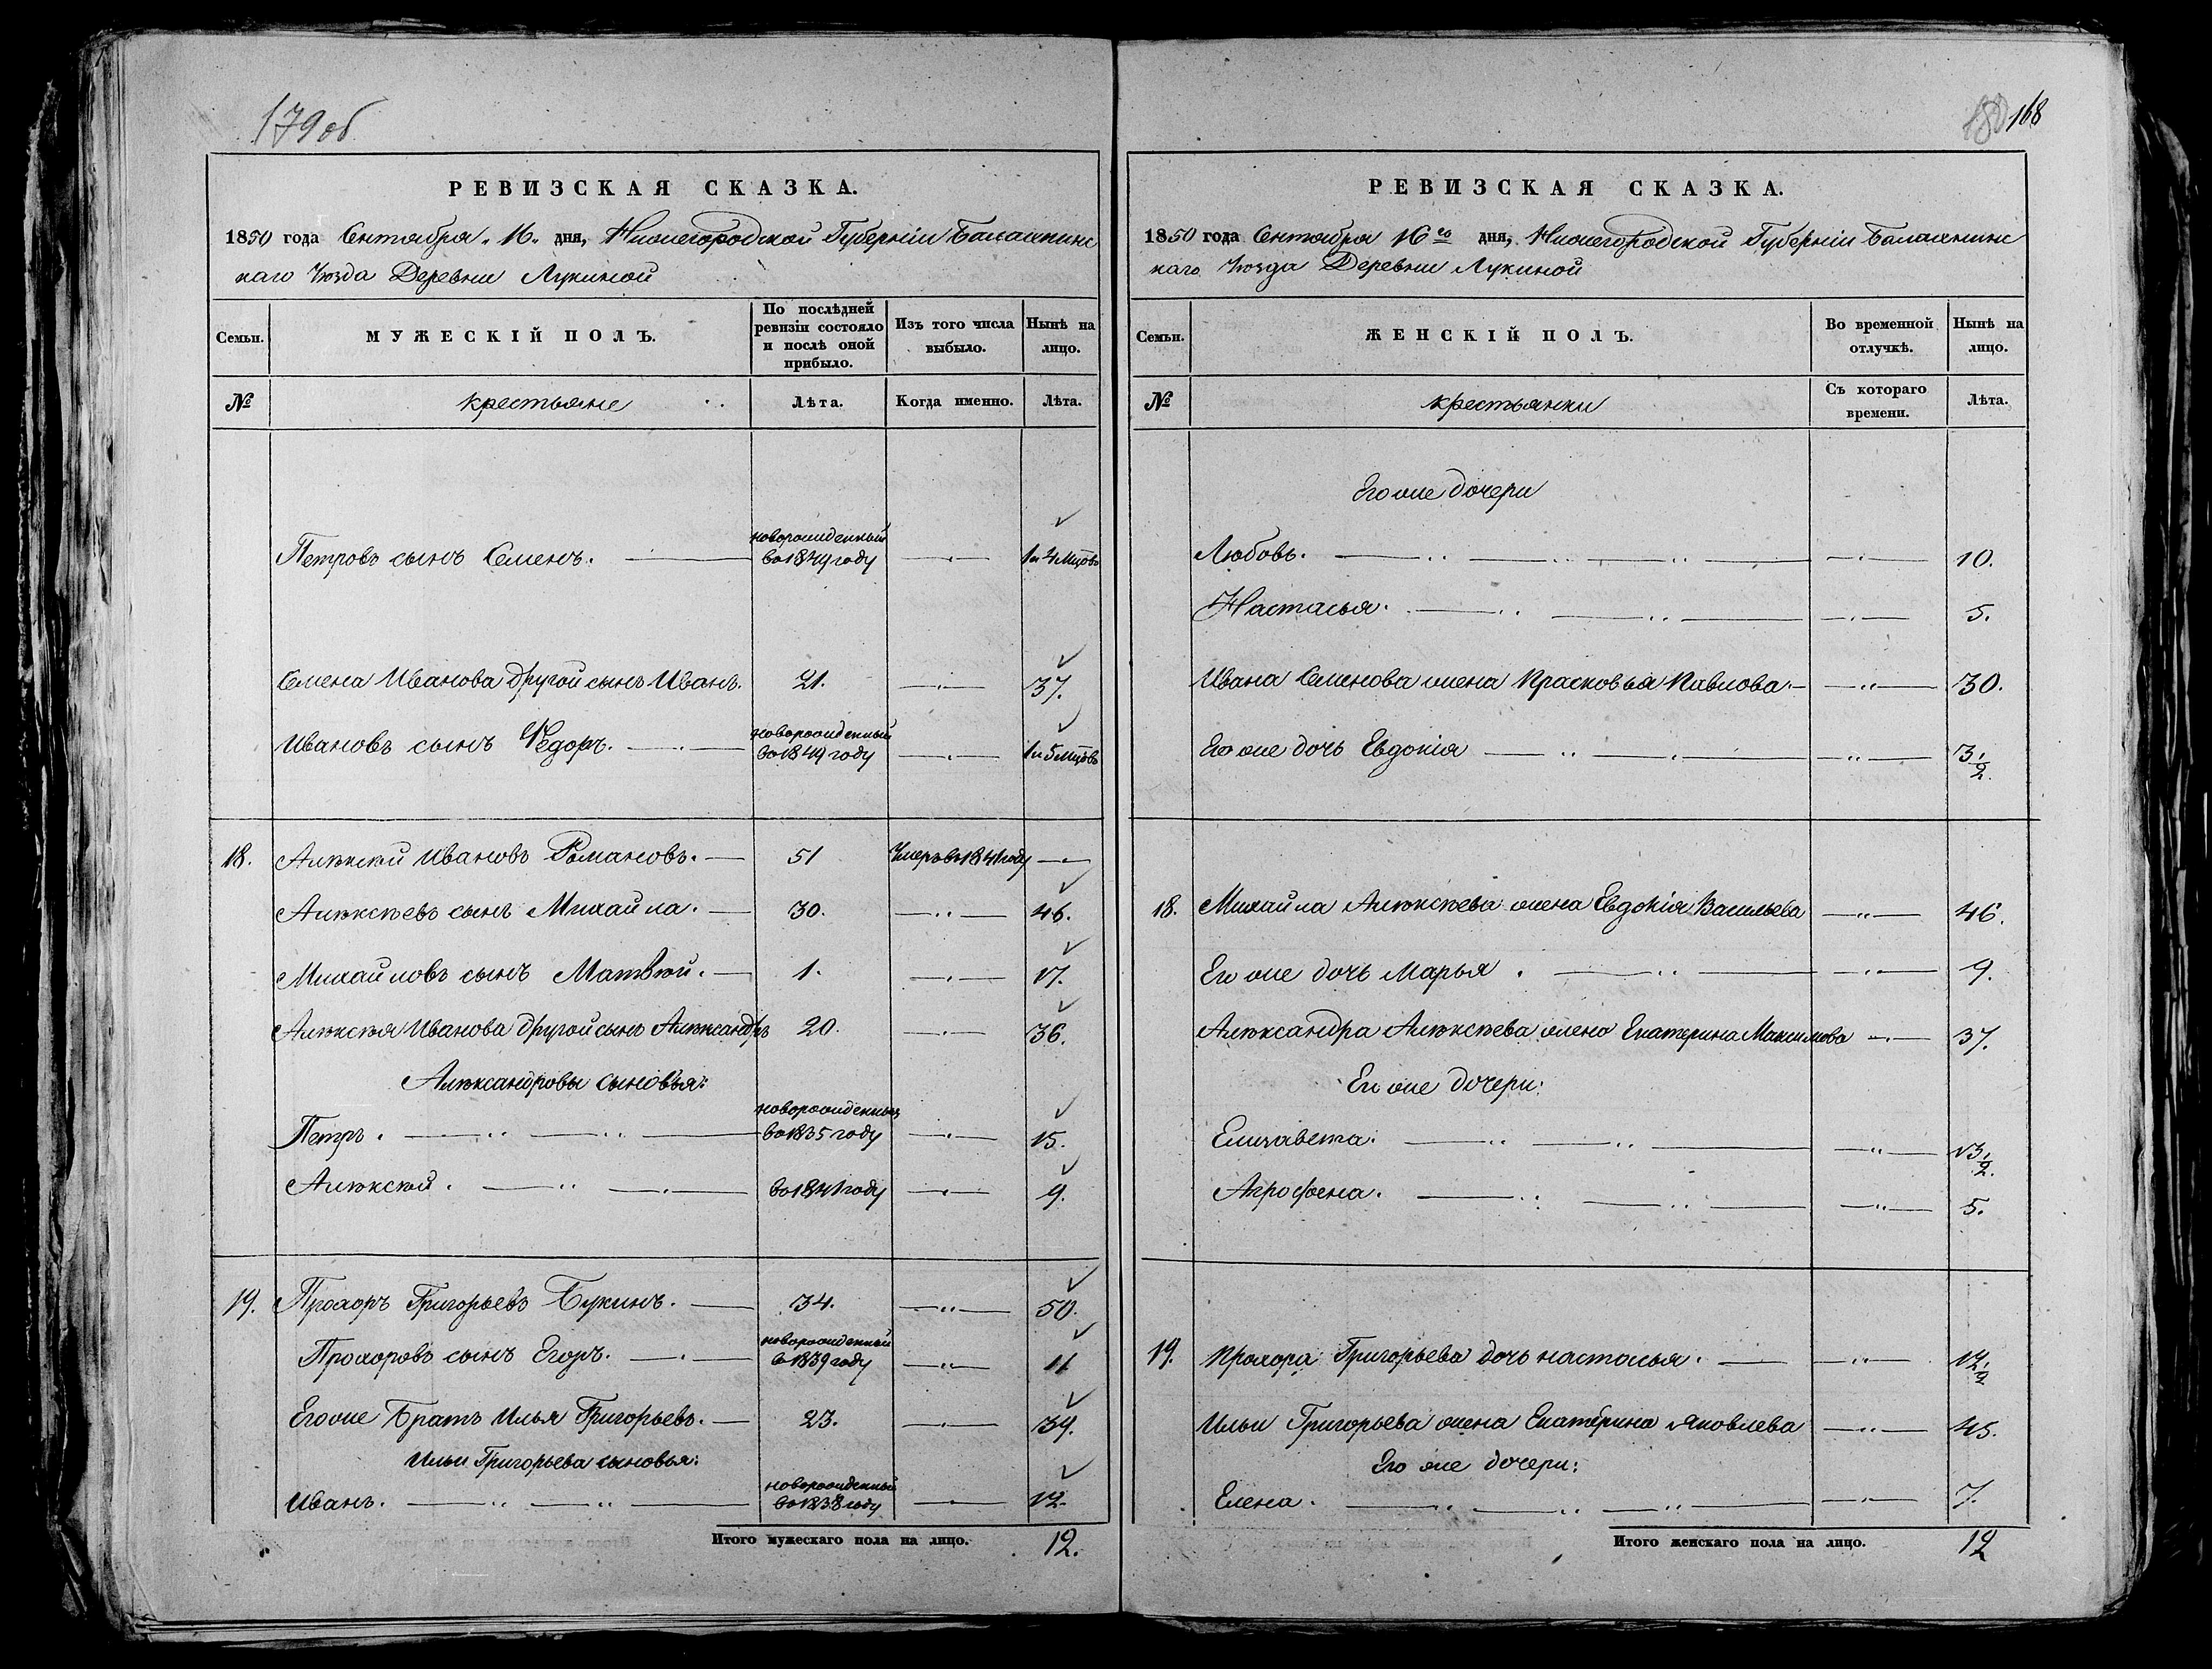 179 об
РЕВИЗСКАЯ СКАЗКА.
1850 года Сентября „16„ дня, Нижегородской Губерніи Балахнинс
каго Уѣзда Деревни Лукиной
Семьи. МУЖЕСКІЙ ПОЛЪ. По послѣдней ревизіи состояло и послѣ оной прибыло. Изъ того числа выбыло. Нынѣ на лицо.
№ крестьяне Лѣта. Когда именно. Лѣта.
Петровъ сынъ Семенъ. новорожденный во 1849 году 1 и 4 мцовъ
Семена Иванова другой сынъ Иванъ. 21. 37.
Ивановъ сынъ Ѳедоръ. новорожденный во 1849 году 1 и 5 мцовъ
18. Алѣксѣй Ивановъ Романовъ. 51 Умеръ въ 1841 году
Алѣксѣевъ сынъ Михайла. 30. 46.
Михайловъ сынъ Матвѣй. 1. 17.
Алѣксѣя Иванова другой сынъ Алѣксандръ 20. 36.
Алѣксандровы сыновья:
Петръ. новорожденный во 1835 году 15.
Алѣксѣй. во 1841 году 9.
19. Прохоръ Григорьевъ Букинъ. 34. 50.
Прохоровъ сынъ Егоръ. новорожденный в 1839 году 11
Егоже братъ Илья Григорьевъ. 23. 39.
Ильи Григорьева сыновья:
Иванъ. новорожденный во 1838 году 12.
Итого мужескаго пола на лицо. 12.
180 168
РЕВИЗСКАЯ СКАЗКА.
1850 года Сентября 16го дня, Нижегородской Губерніи Балахнинс
каго Уѣзда Деревни Лукиной
Семьи. ЖЕНСКІЙ ПОЛЪ. Во временной отлучкѣ. Нынѣ на лицо.
№ крестьянки Съ котораго времени. Лѣта.
Егоже дочери
Любовь. 10.
Настасья. 5.
Ивана Семенова жена Прасковья Павлова. 30.
Его же дочь Евдокія 3 1/2.
18. Михайла Алѣксѣева жена Евдокія Васильева 46.
Его же дочь Марья. 9.
Алѣксандра Алѣксѣева жена Екатерина Максимова 37.
Его же дочери:
Елизавета. 13 1/2.
Агрофена. 5.
19. Прохора Григорьева дочь настасья. 12 1/2
Ильи Григорьева жена Екатерина Яковлева 45.
Его же дочери:
Елена. 7.
Итого женскаго пола на лицо. 12